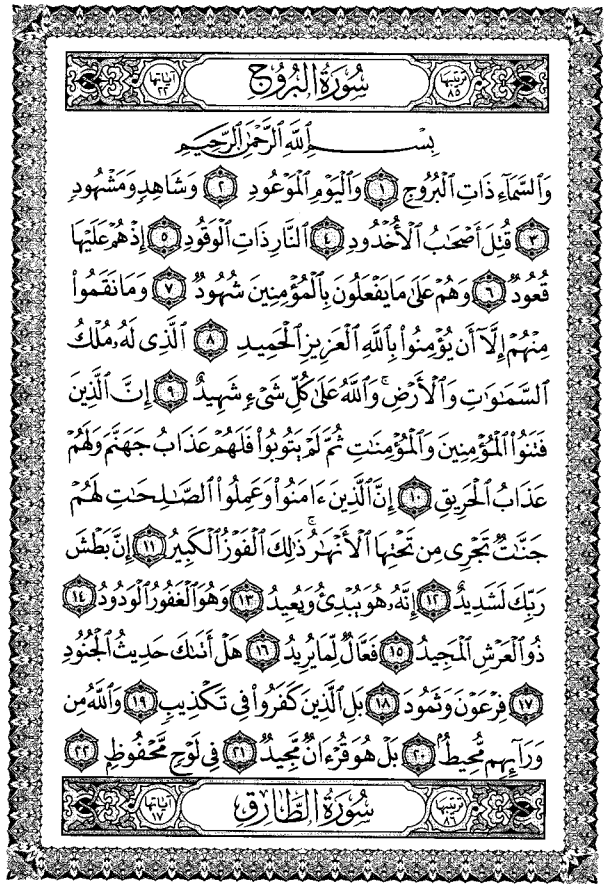 ترتيبها ٨٥ سُورَةُ البُرُوجِ آياتها ٢٢
بِسْمِ اللَّهِ الرَّحْمَٰنِ الرَّحِيمِ
وَالسَّمَاءِ ذَاتِ الْبُرُوجِ ١ وَالْيَوْمِ الْمَوْعُودِ ٢ وَشَاهِدٍ وَمَشْهُودٍ
٣ قُتِلَ أَصْحَابُ الْأُخْدُودِ ٤ النَّارِ ذَاتِ الْوَقُودِ ٥ إِذْ هُمْ عَلَيْهَا
قُعُودٌ ٦ وَهُمْ عَلَىٰ مَا يَفْعَلُونَ بِالْمُؤْمِنِينَ شُهُودٌ ٧ وَمَا نَقَمُوا
مِنْهُمْ إِلَّا أَن يُؤْمِنُوا بِاللَّهِ الْعَزِيزِ الْحَمِيدِ ٨ الَّذِي لَهُ مُلْكُ
السَّمَٰوَٰتِ وَالْأَرْضِ ۚ وَاللَّهُ عَلَىٰ كُلِّ شَيْءٍ شَهِيدٌ ٩ إِنَّ الَّذِينَ
فَتَنُوا الْمُؤْمِنِينَ وَالْمُؤْمِنَٰتِ ثُمَّ لَمْ يَتُوبُوا فَلَهُمْ عَذَابُ جَهَنَّمَ وَلَهُمْ
عَذَابُ الْحَرِيقِ ١٠ إِنَّ الَّذِينَ ءَامَنُوا وَعَمِلُوا الصَّٰلِحَٰتِ لَهُمْ
جَنَّٰتٌ تَجْرِي مِن تَحْتِهَا الْأَنْهَٰرُ ۚ ذَٰلِكَ الْفَوْزُ الْكَبِيرُ ١١ إِنَّ بَطْشَ
رَبِّكَ لَشَدِيدٌ ١٢ إِنَّهُ هُوَ يُبْدِئُ وَيُعِيدُ ١٣ وَهُوَ الْغَفُورُ الْوَدُودُ ١٤
ذُو الْعَرْشِ الْمَجِيدُ ١٥ فَعَّالٌ لِّمَا يُرِيدُ ١٦ هَلْ أَتَىٰكَ حَدِيثُ الْجُنُودِ
١٧ فِرْعَوْنَ وَثَمُودَ ١٨ بَلِ الَّذِينَ كَفَرُوا فِي تَكْذِيبٍ ١٩ وَاللَّهُ مِن
وَرَائِهِم مُّحِيطٌ ٢٠ بَلْ هُوَ قُرْءَانٌ مَّجِيدٌ ٢١ فِي لَوْحٍ مَّحْفُوظٍ ٢٢
ترتيبها ٨٦ سُورَةُ الطَّارِقِ آياتها ١٧